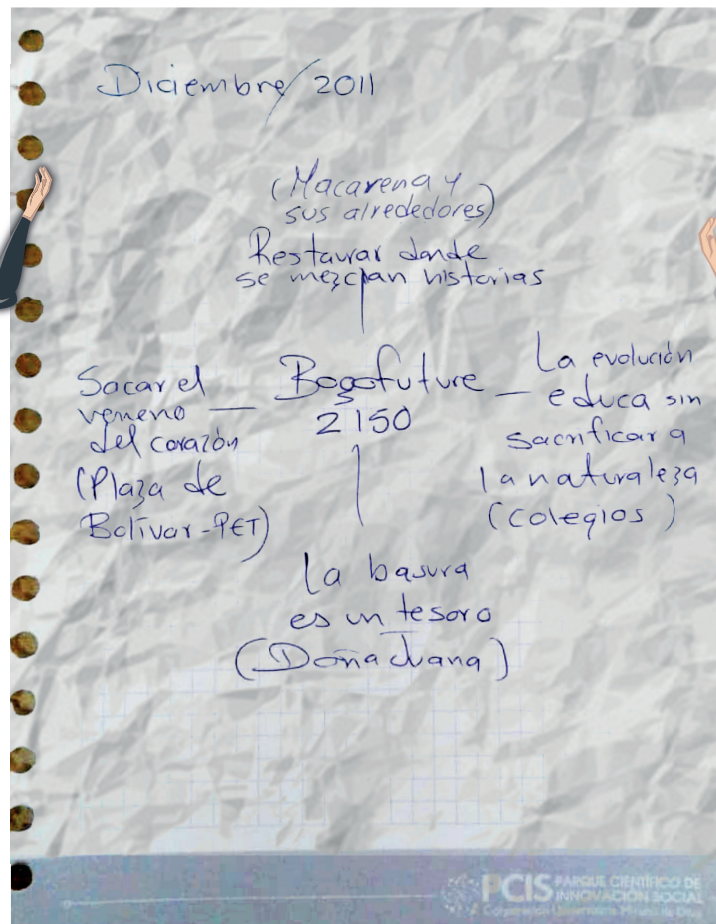 Diciembre/2011
(Macarena y
sus alrededores)
Restaurar donde
se mezclan historias
Sacar el
veneno —
del corazón
(Plaza de
Bolívar-PET)
Bogofuture
2150
La evolución
— educa sin
sacrificar a
la naturaleza
(colegios)
la basura
es un tesoro
(Doña Juana)
PCIS PARQUE CIENTÍFICO DE
INNOVACIÓN SOCIAL
Corporación Universitaria Minuto de Dios